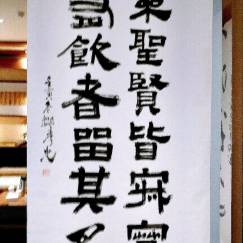 來聖賢皆寂寞
有飲者留其名